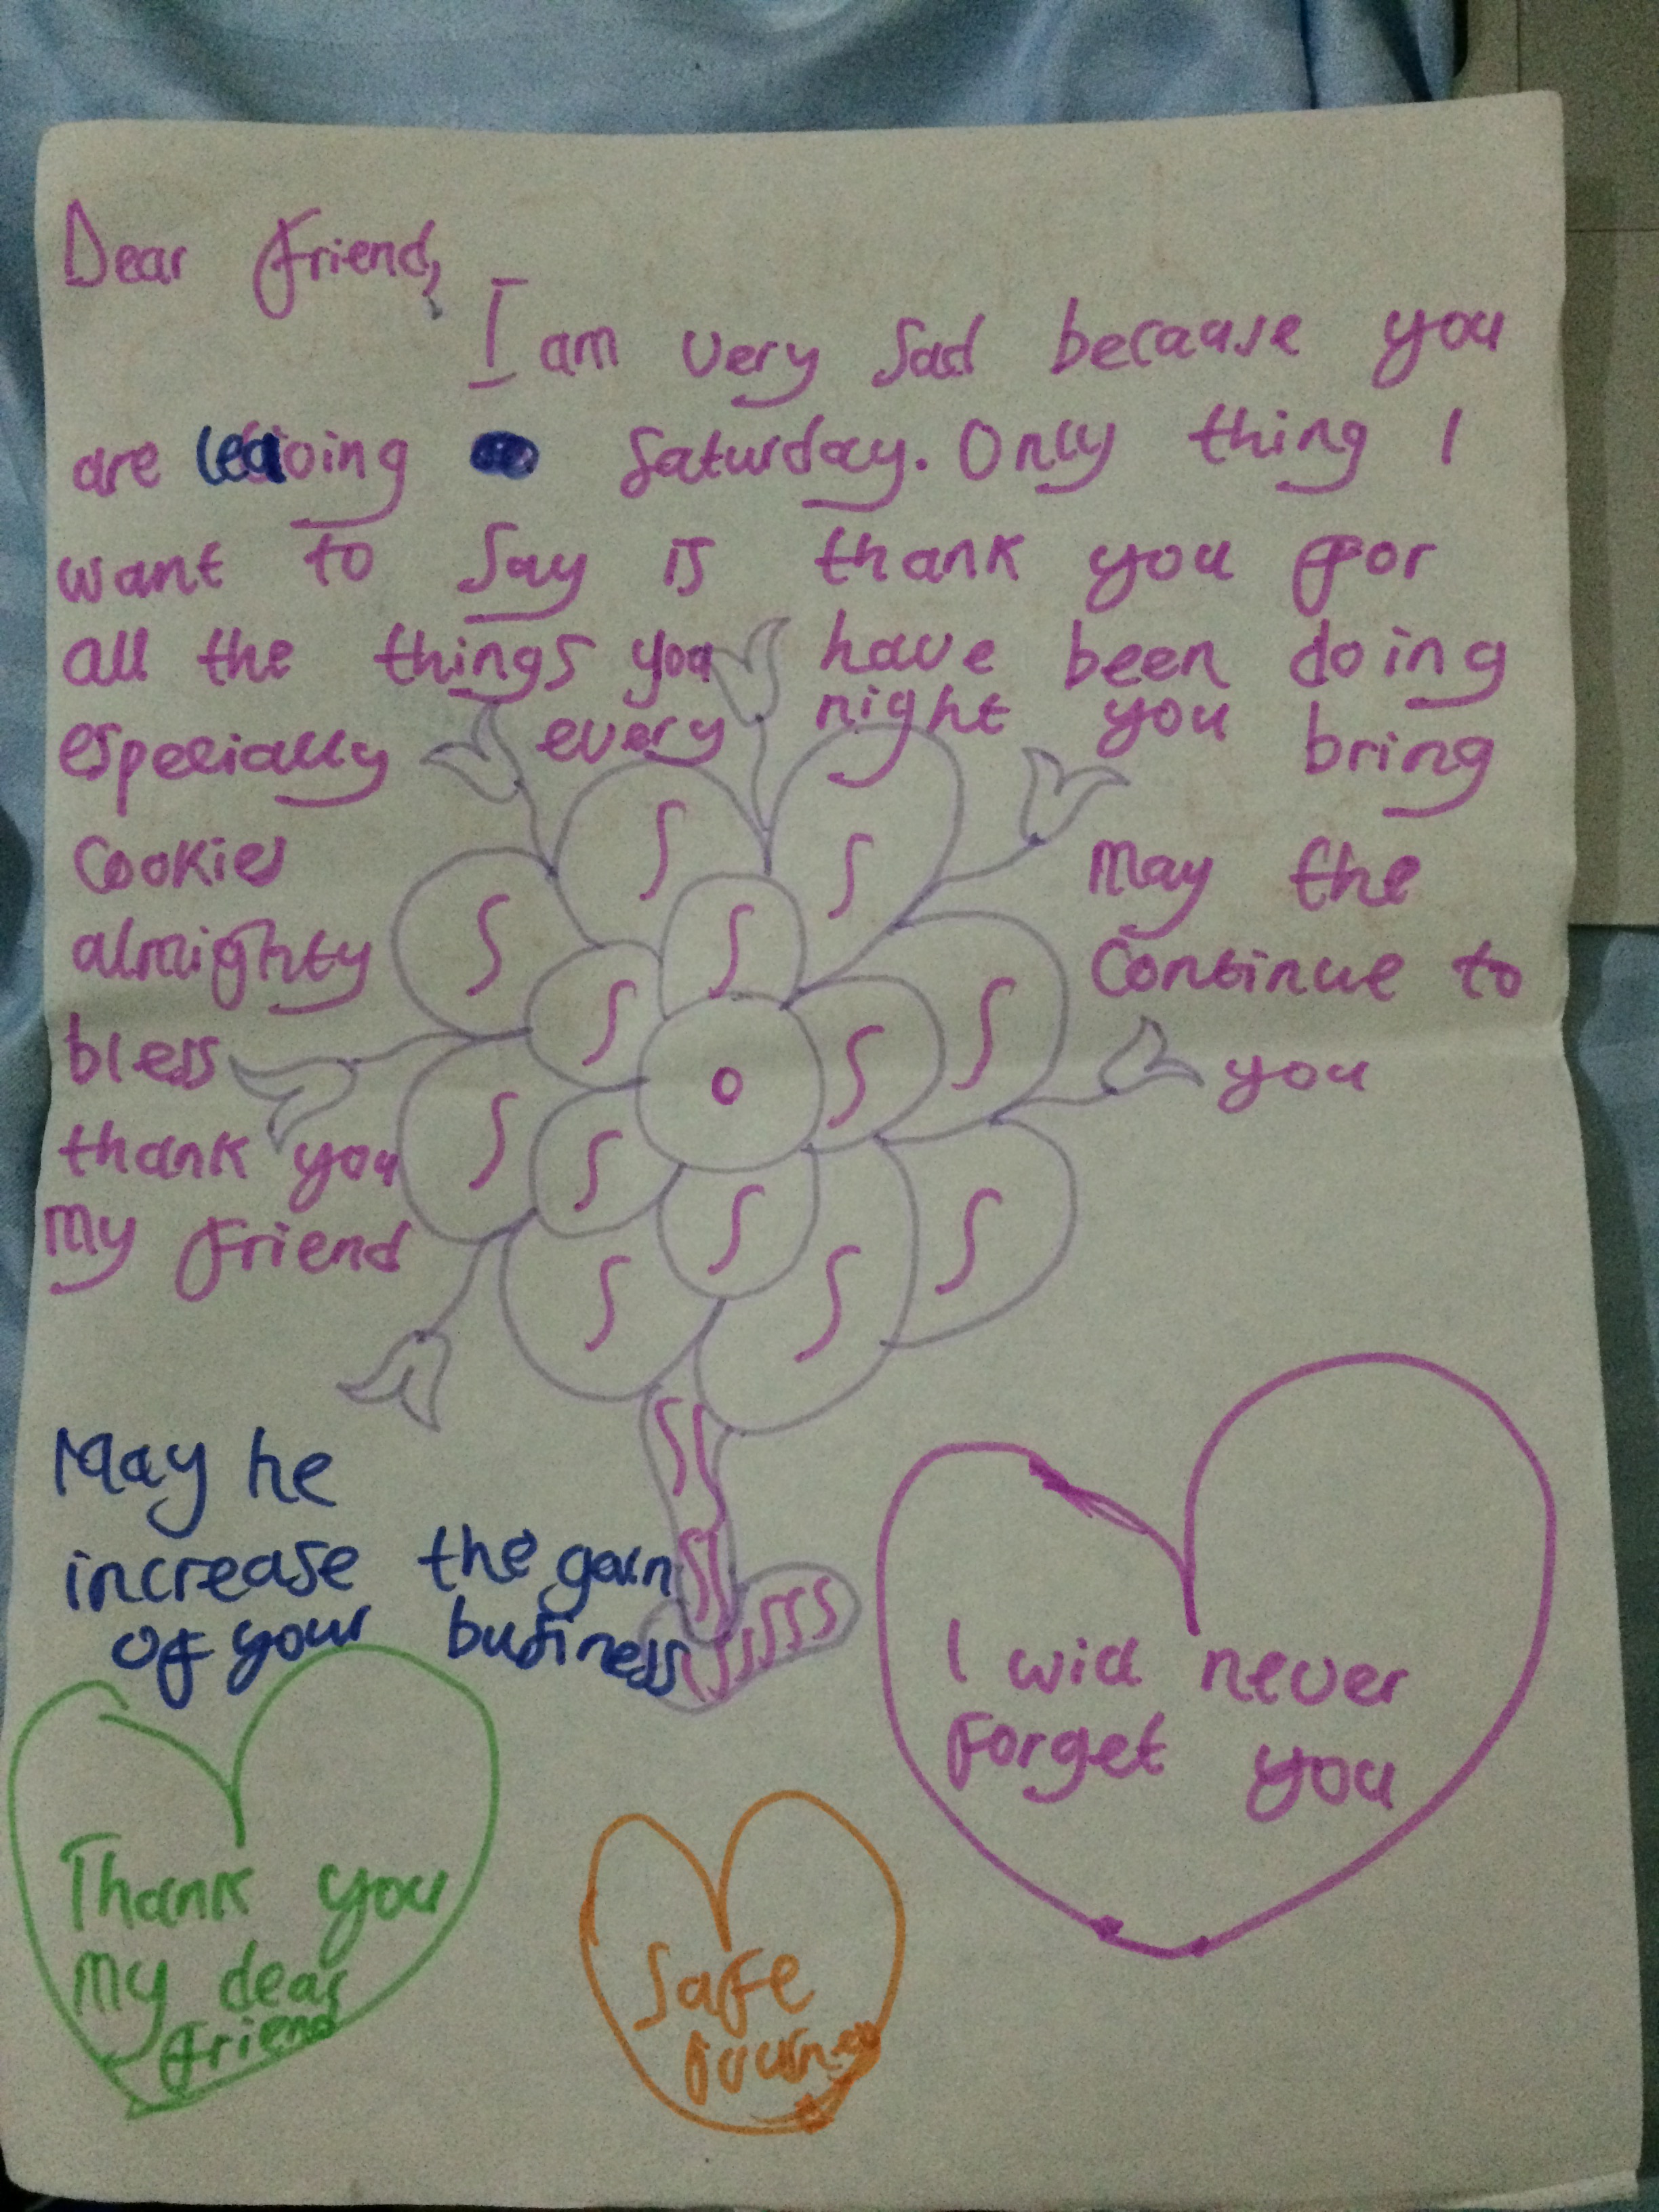 Dear friend,
I am very sad because you
are leaoing Saturday. Only thing I
want to say is thank you for
all the things you have been doing
especially every night you bring
cookies May the
almighty continue to
bless you
thank you
my friend
S S
S S S
S S S
O
S S S
S S S
May he
increase the gain
of your business
I will never
forget you
Thank you
my dear
friend
Safe
journey